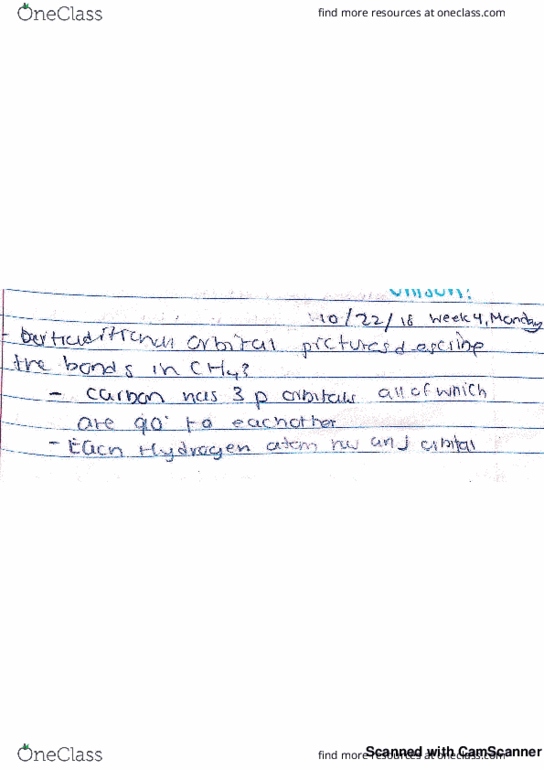 OneClass find more resources at oneclass.com
10/22/18 Week 4, Monday
orbital pictures describe
the bonds in CH4?
- Carbon has 3 p orbitals all of which
are 90° to eachother
- Each Hydrogen atom has an s orbital
OneClass find more resources at oneclass.com
Scanned with CamScanner